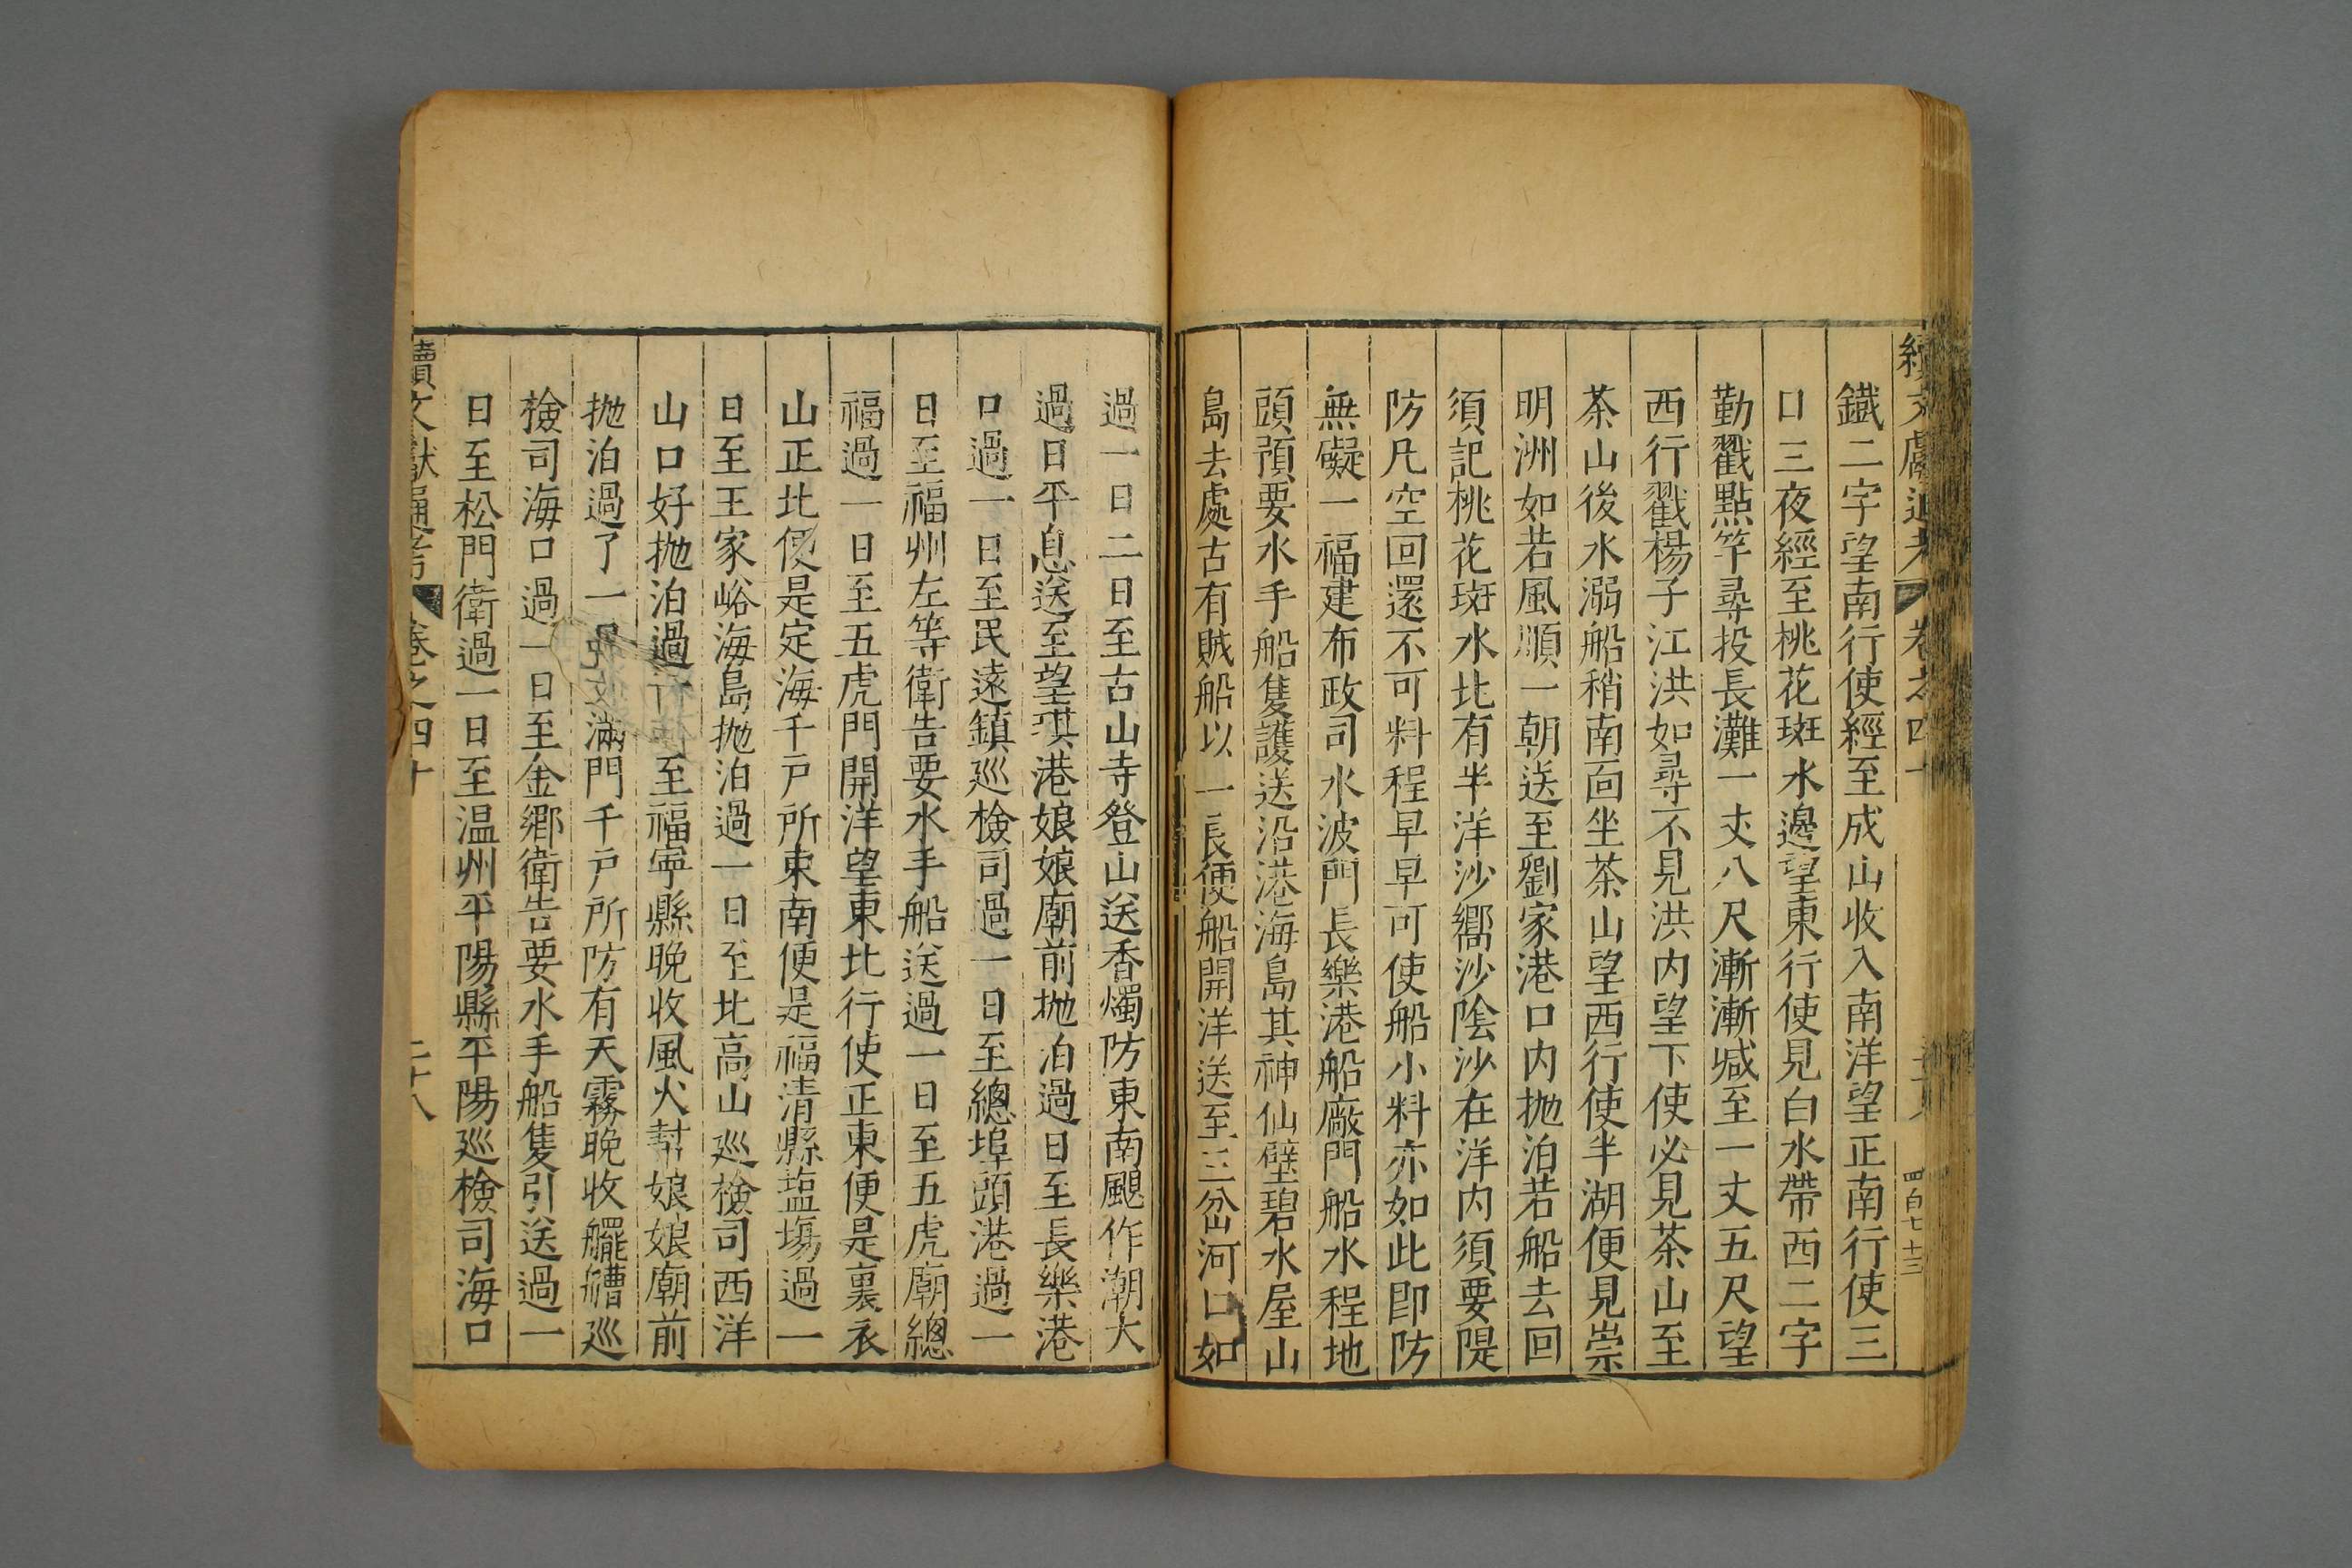 續文獻通考 卷之四十 四百七十三
鐵二字望南行使經至成山收入南洋望正南行使三
日三夜經至桃花斑水邊望東行使見白水帶西二字
勤戳點竿尋投長灘一丈八尺漸漸減至一丈五尺望
西行戳楊子江洪如尋不見洪内望下使必見茶山至
茶山後水溺船稍南面坐茶山望西行使半湖便見崇
明洲如若風順一朝送至劉家港口内抛泊若船去回
須記桃花斑水北有半洋沙嚮沙陰沙在洋内須要隄
防凡空回還不可料程早早可使船小料亦如此即防
無礙一福建布政司水波門長樂港船廠門船水程地
頭預要水手船隻護送沿港海島其神仙壁碧水屋山
島去處古有賊船以一長便船開洋送至三岔河口如
過一日二日至古山寺登山送香燭防東南颶作潮大
過日平息送至望琪港娘娘廟前抛泊過日至長樂港
口過一日至民遠鎮廵檢司過一日至總埠頭港過一
日至福州左等衛告要水手船送過一日至五虎廟總
福過一日至五虎門開洋望東北行使正東便是裏衣
山正北便是定海千戸所東南便是福清縣塩塲過一
日至王家峪海島抛泊過一日至北高山廵檢司西洋
山口好抛泊過一行至福寧縣晚收風火幇娘娘廟前
抛泊過了一晚收滿門千戸所防有天霧晚收艍艚廵
檢司海口過一日至金鄉衛告要水手船隻引送過一
日至松門衛過一日至温州平陽縣平陽廵檢司海口
續文獻通考 卷之四十 二十八